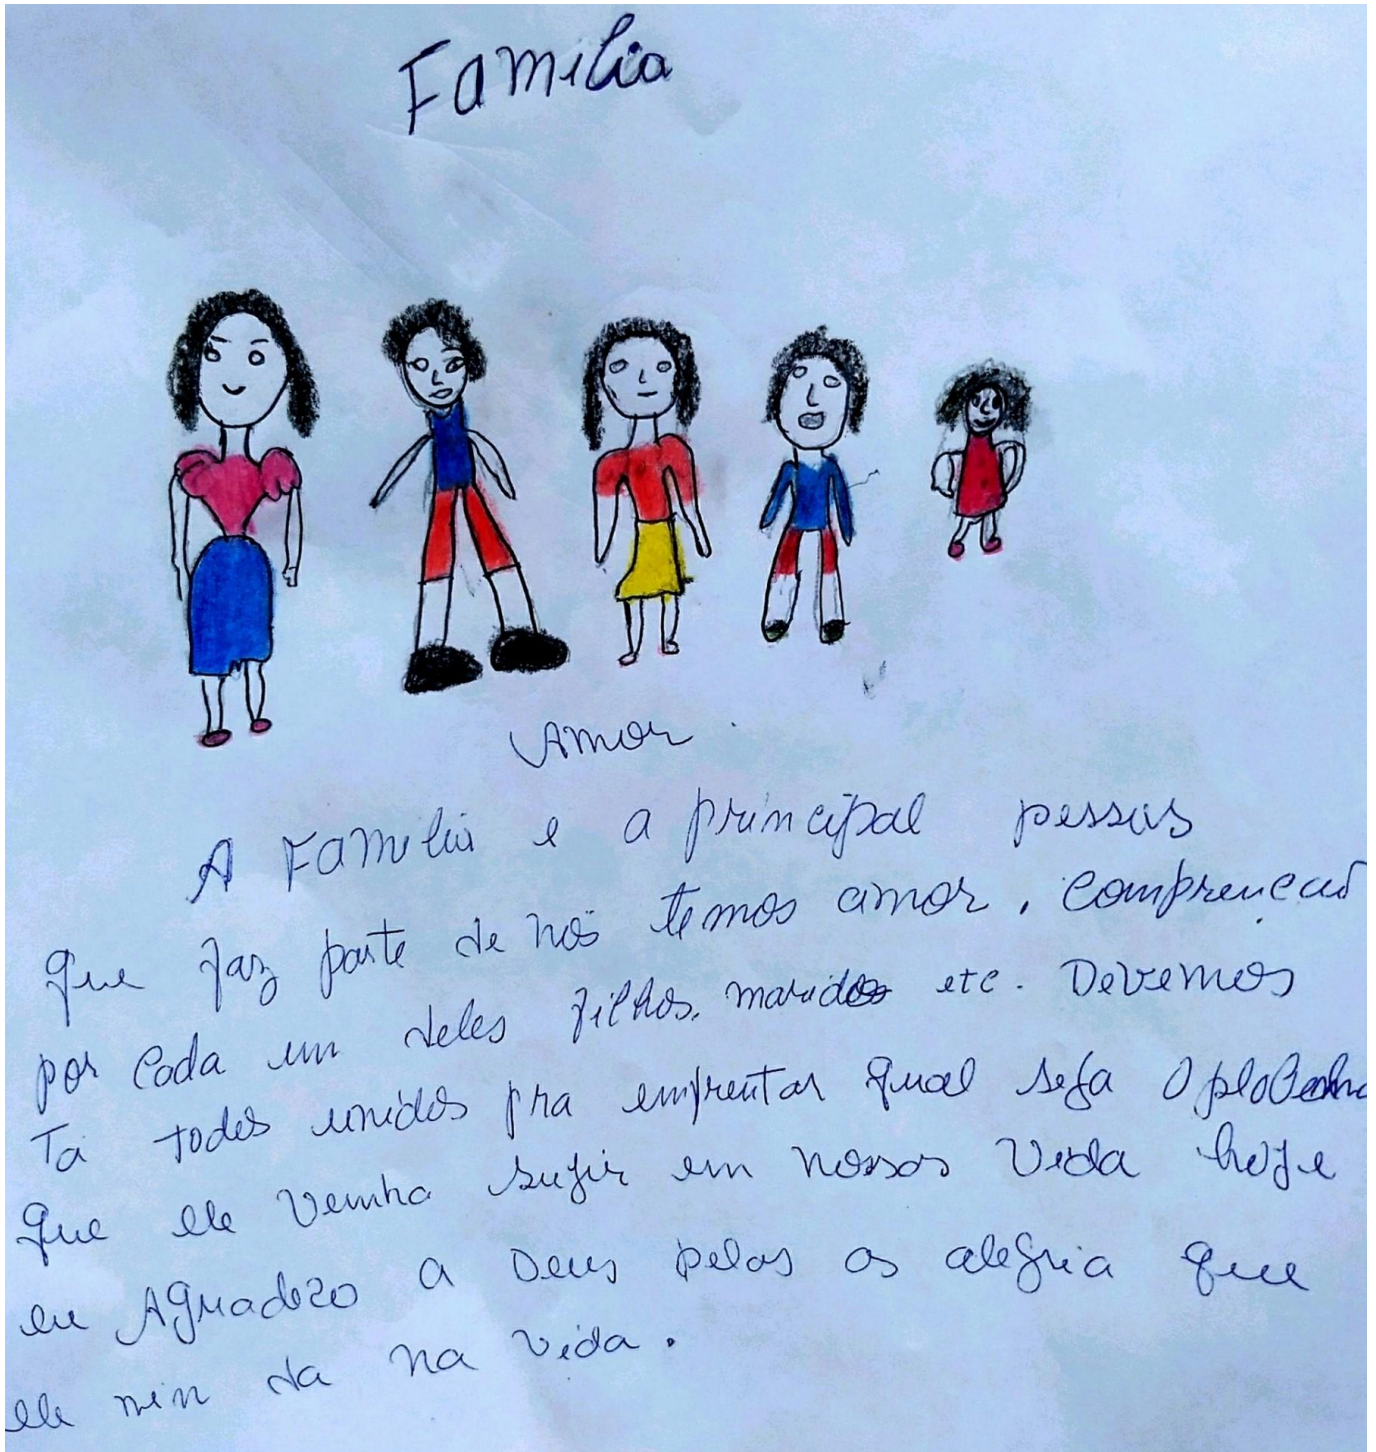 Familia
Amor
A Familia e a principal pessoas
que faz parte de nós temos amor, comprencaõ
por cada um deles filhos, maridos etc. Devemos
Ta todos unidos pra emfrentar qual seja O
que ele venha sugir em nossas vida hoje
eu Agradezo a Deus pelas as alegria que
ele min da na vida.